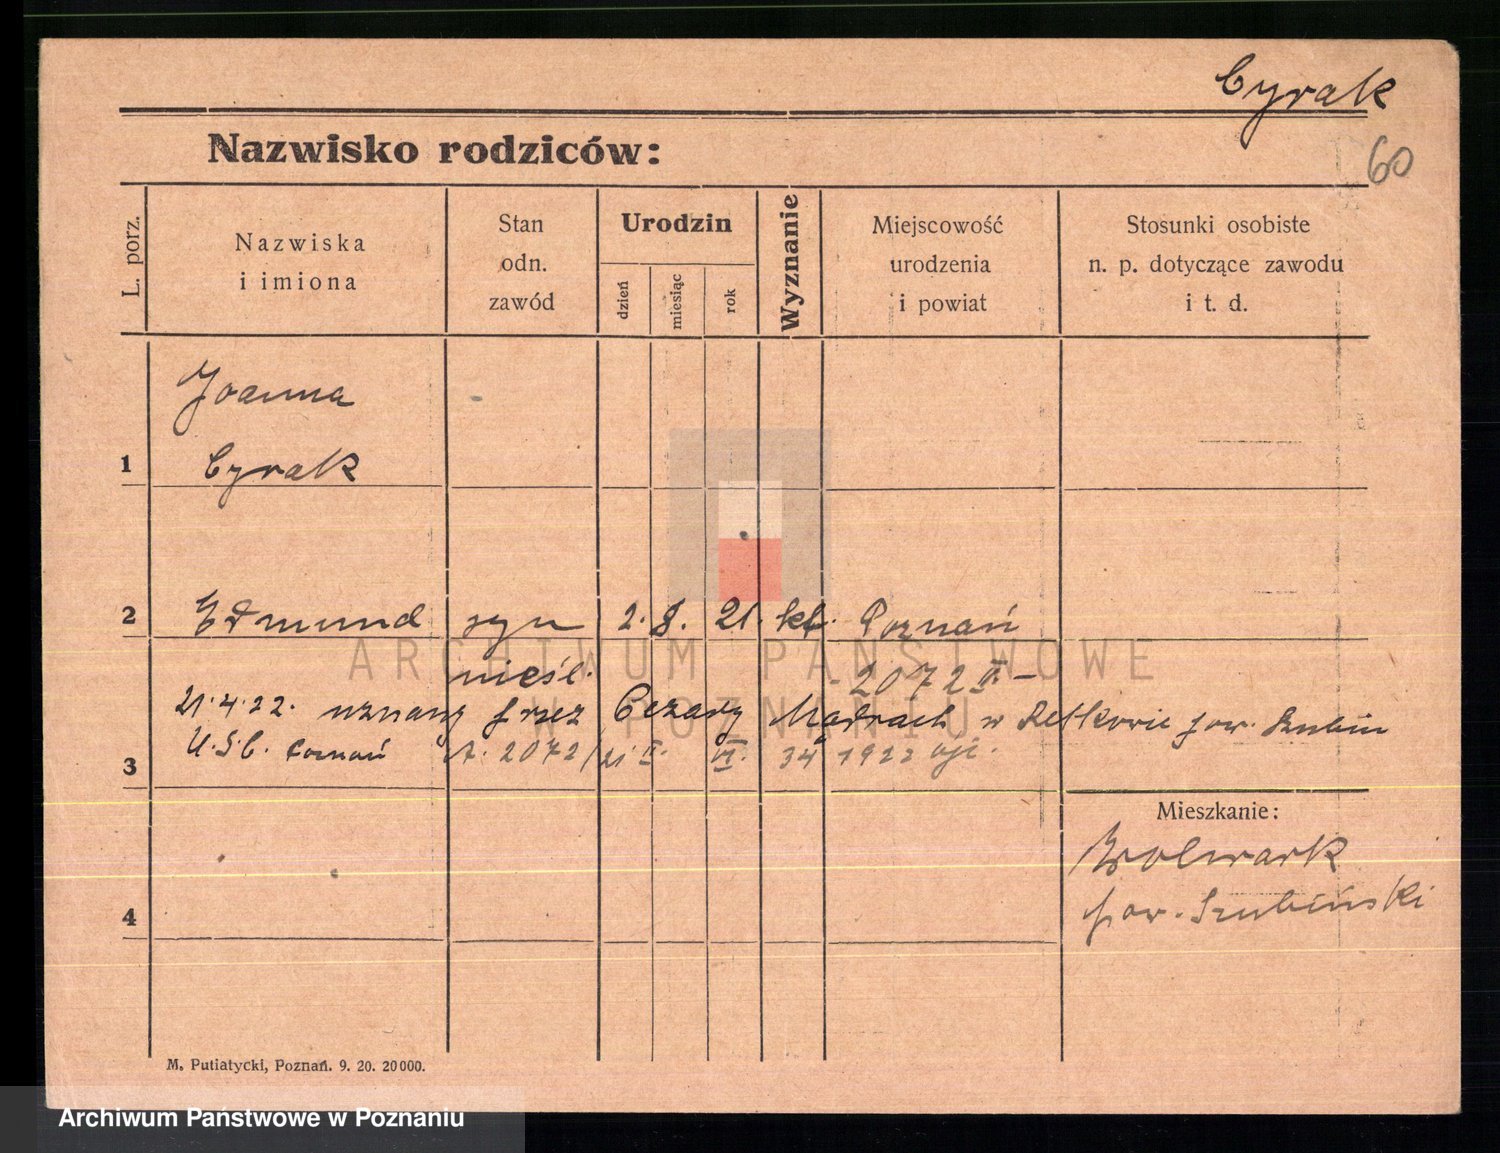 Cyrak
60
Nazwisko rodziców:
L. porz.
Nazwiska
i imiona
Stan
odn.
zawód
Urodzin
dzień
miesiąc
rok
Wyznanie
Miejscowość
urodzenia
i powiat
Stosunki osobiste
n. p. dotyczące zawodu
i t. d.
Joanna
1 Cyrak
2 Edmund syn 2. 8. 21. kt. Poznań
nieśl. 2072 II –
21.4.22. uznany przez Cezary Mądrach w Retkowie pow. Szubin
U.S.C. Poznań A. 2072/21 II. VI. 34 1922
3
Mieszkanie:
Wolwark
pow. Szubiński
4
M. Putiatycki, Poznań. 9. 20. 20000.
ARCHIWUM PAŃSTWOWE
W POZNANIU
Archiwum Państwowe w Poznaniu